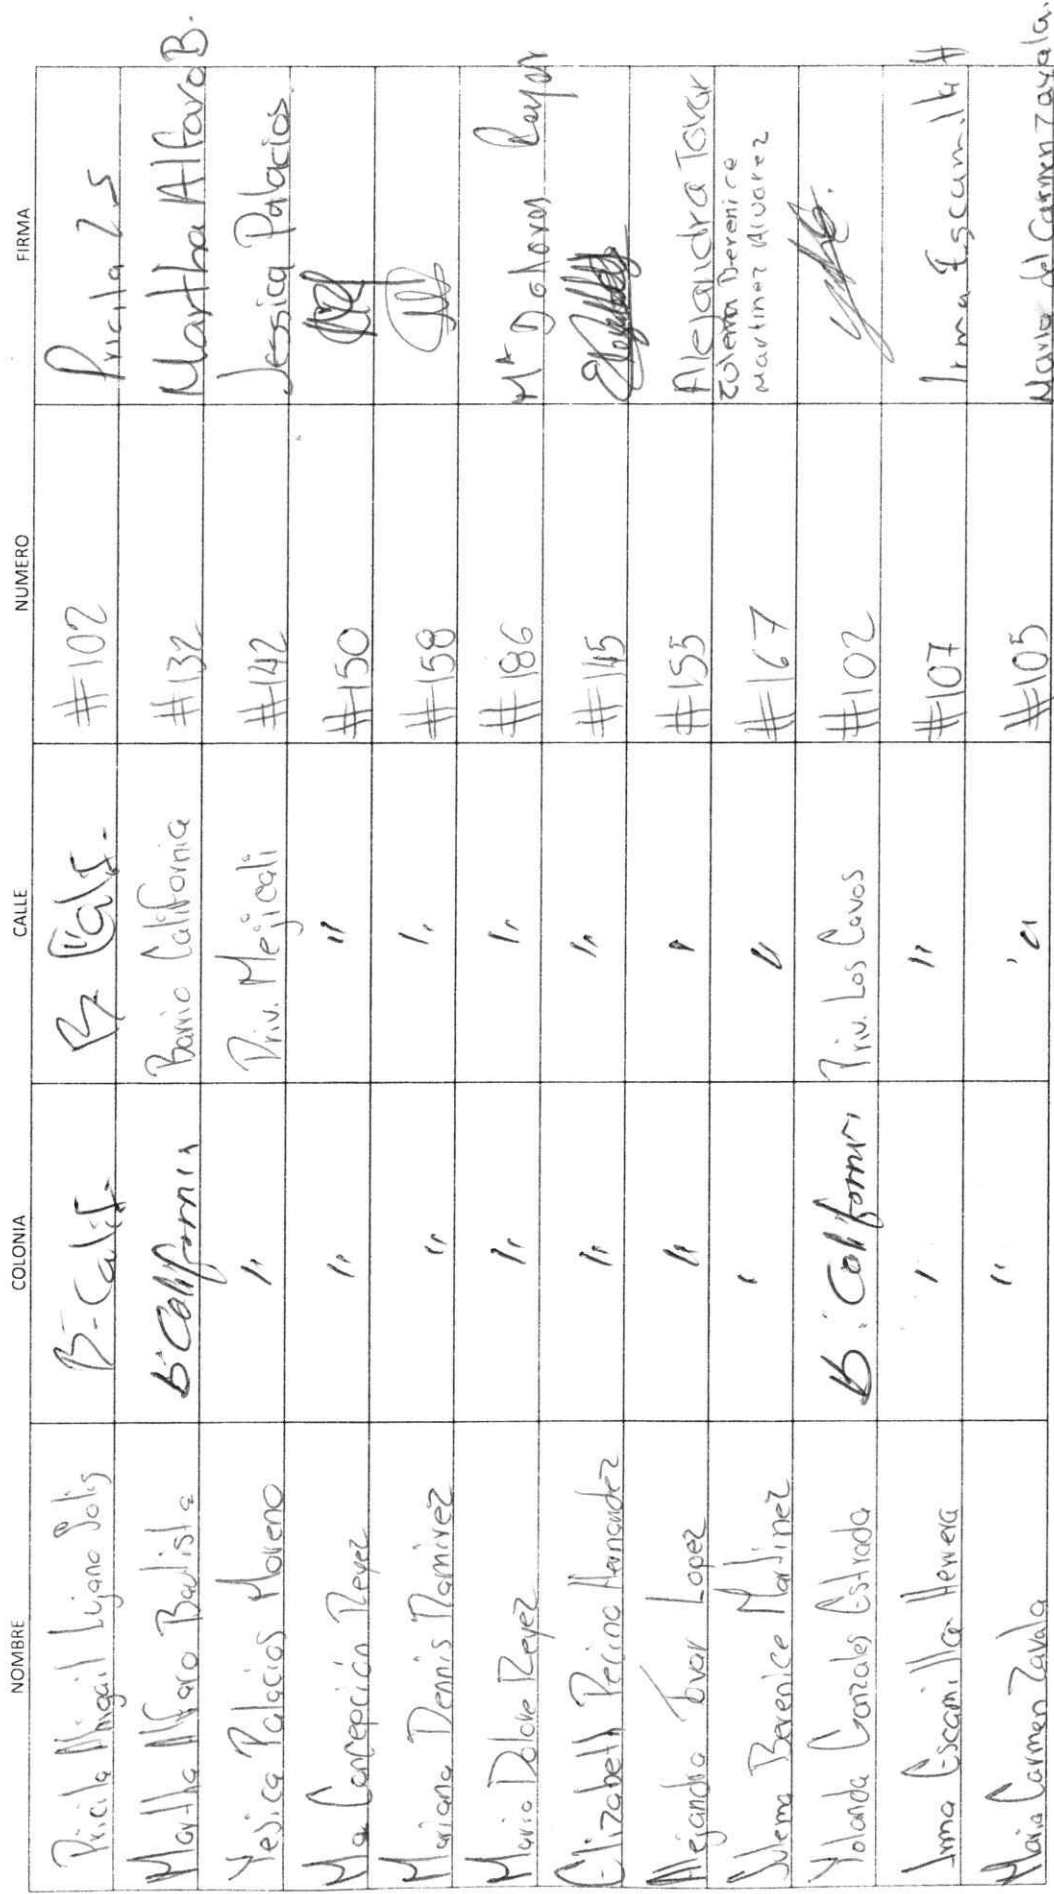 NOMBRE COLONIA CALLE NUMERO FIRMA
Pricila Abigail Lujano Solis B-Calif. B Calf. #102 Pricila L S
Martha Alfaro Bautista B California Barrio California #132 Martha Alfaro B.
Yesica Palacios Moreno " Priv. Mejicali #142 Jessica Palacios
Ma Concepción Reyez " " #150
Mariana Dennis Ramirez " " #158
Maria Dolore Reyez " " #186 Mª Dolores Reyes
Elizabeth Recino Hernandez " " #145
Alejandra Tovar Lopez " " #155 Alejandra Tovar
Sulema Berenice Martinez " " #167 Zulema Berenice
Martinez Alvarez
Yolanda Gonzales Estrada B. California Priv. Los Cavos #102
Irma Escamilla Herrera " " #107 Irma Escamilla H
Maria Carmen Zavala " " #105 Maria del Carmen Zavala.